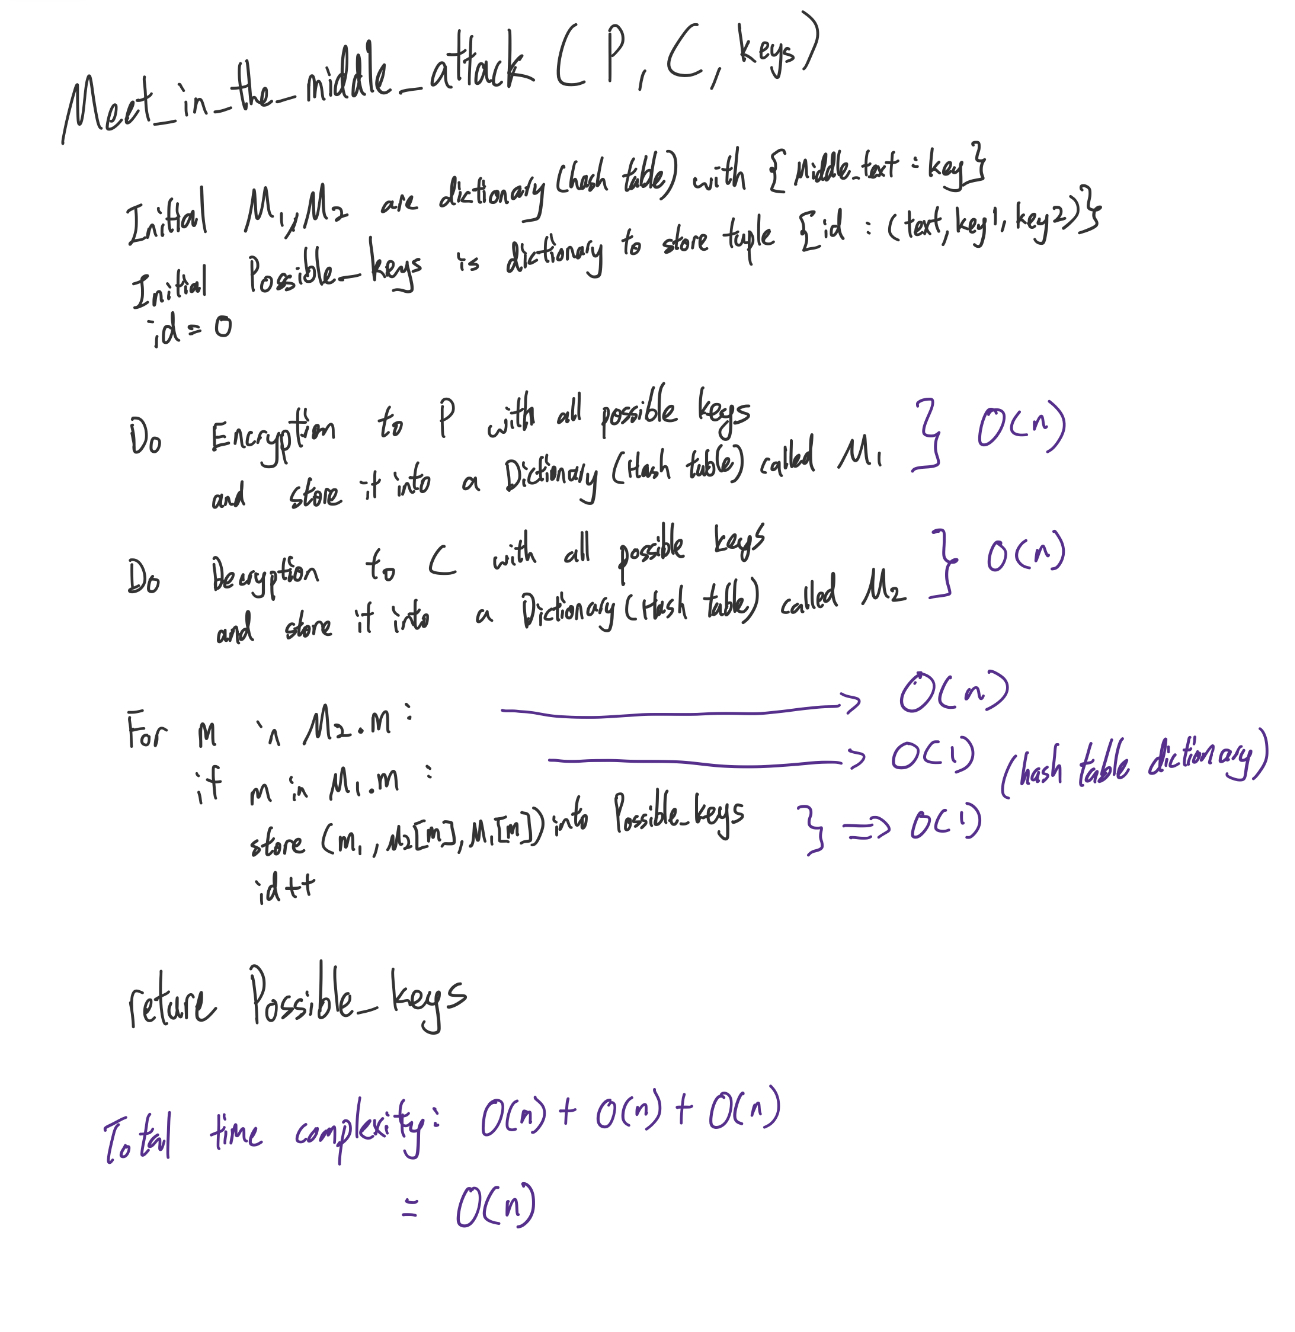 Meet_in_the_middle_attack (P, C, keys)
Initial M1, M2 are dictionary (hash table) with {Middle_text : key}
Initial Possible_keys is dictionary to store tuple {id : (text, key1, key2)}
id = 0
Do Encryption to P with all possible keys
and store it into a Dictionary (Hash table) called M1 } O(n)
Do Decryption to C with all possible keys
and store it into a Dictionary (Hash table) called M2 } O(n)
For m in M2.m: → O(n)
if m in M1.m : → O(1) (hash table dictionary)
store (m, M2[m], M1[m]) into Possible_keys } => O(1)
id++
reture Possible_keys
Total time complexity: O(n) + O(n) + O(n)
= O(n)